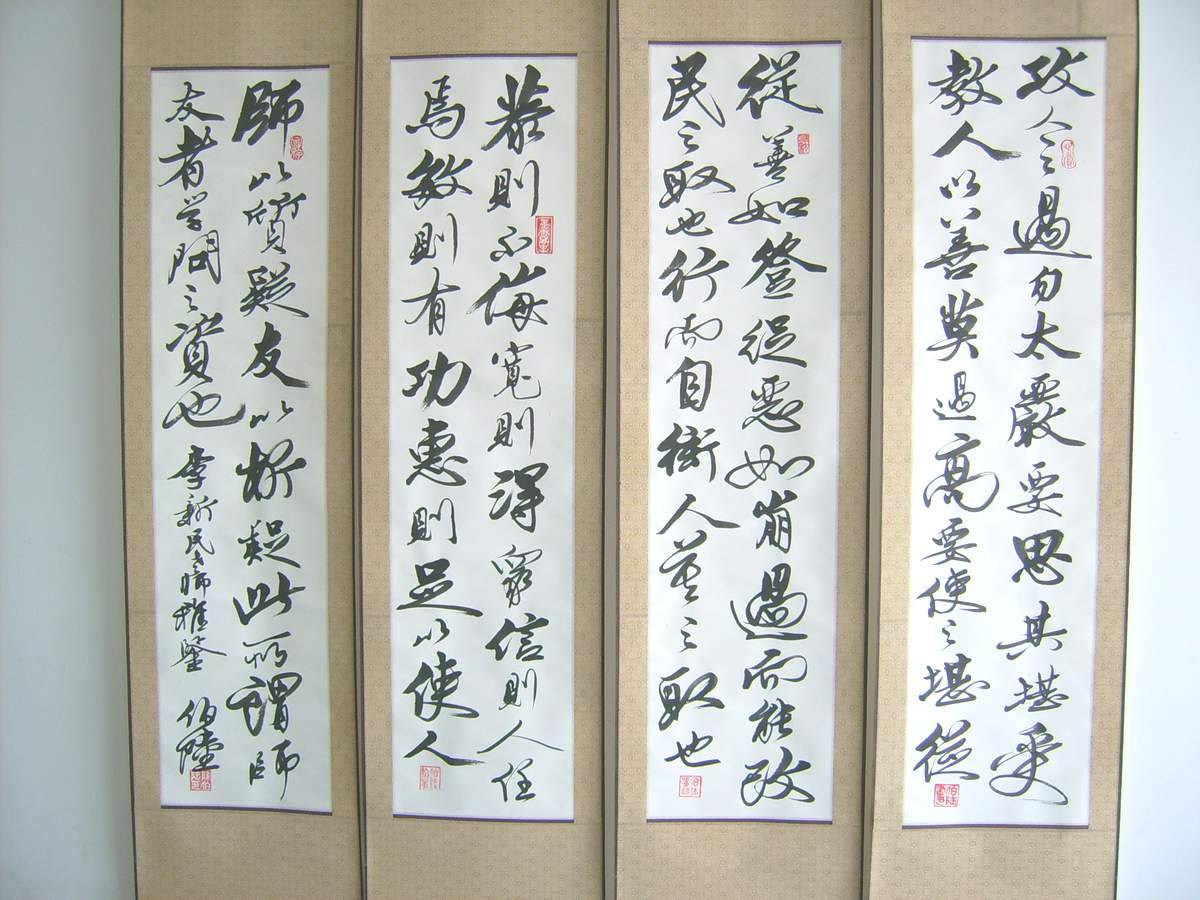 攻人之過勿太嚴要思其堪受
教人以善莫過高要使之堪從
從善如登從惡如崩過而能改
民之取也行而自衒人莫之取也
恭則不侮寬則得眾信則人任
焉敏則有功惠則足以使人
師以質疑友以析疑此所謂師
友者学問之資也
李新民
雅鑒
伯陸